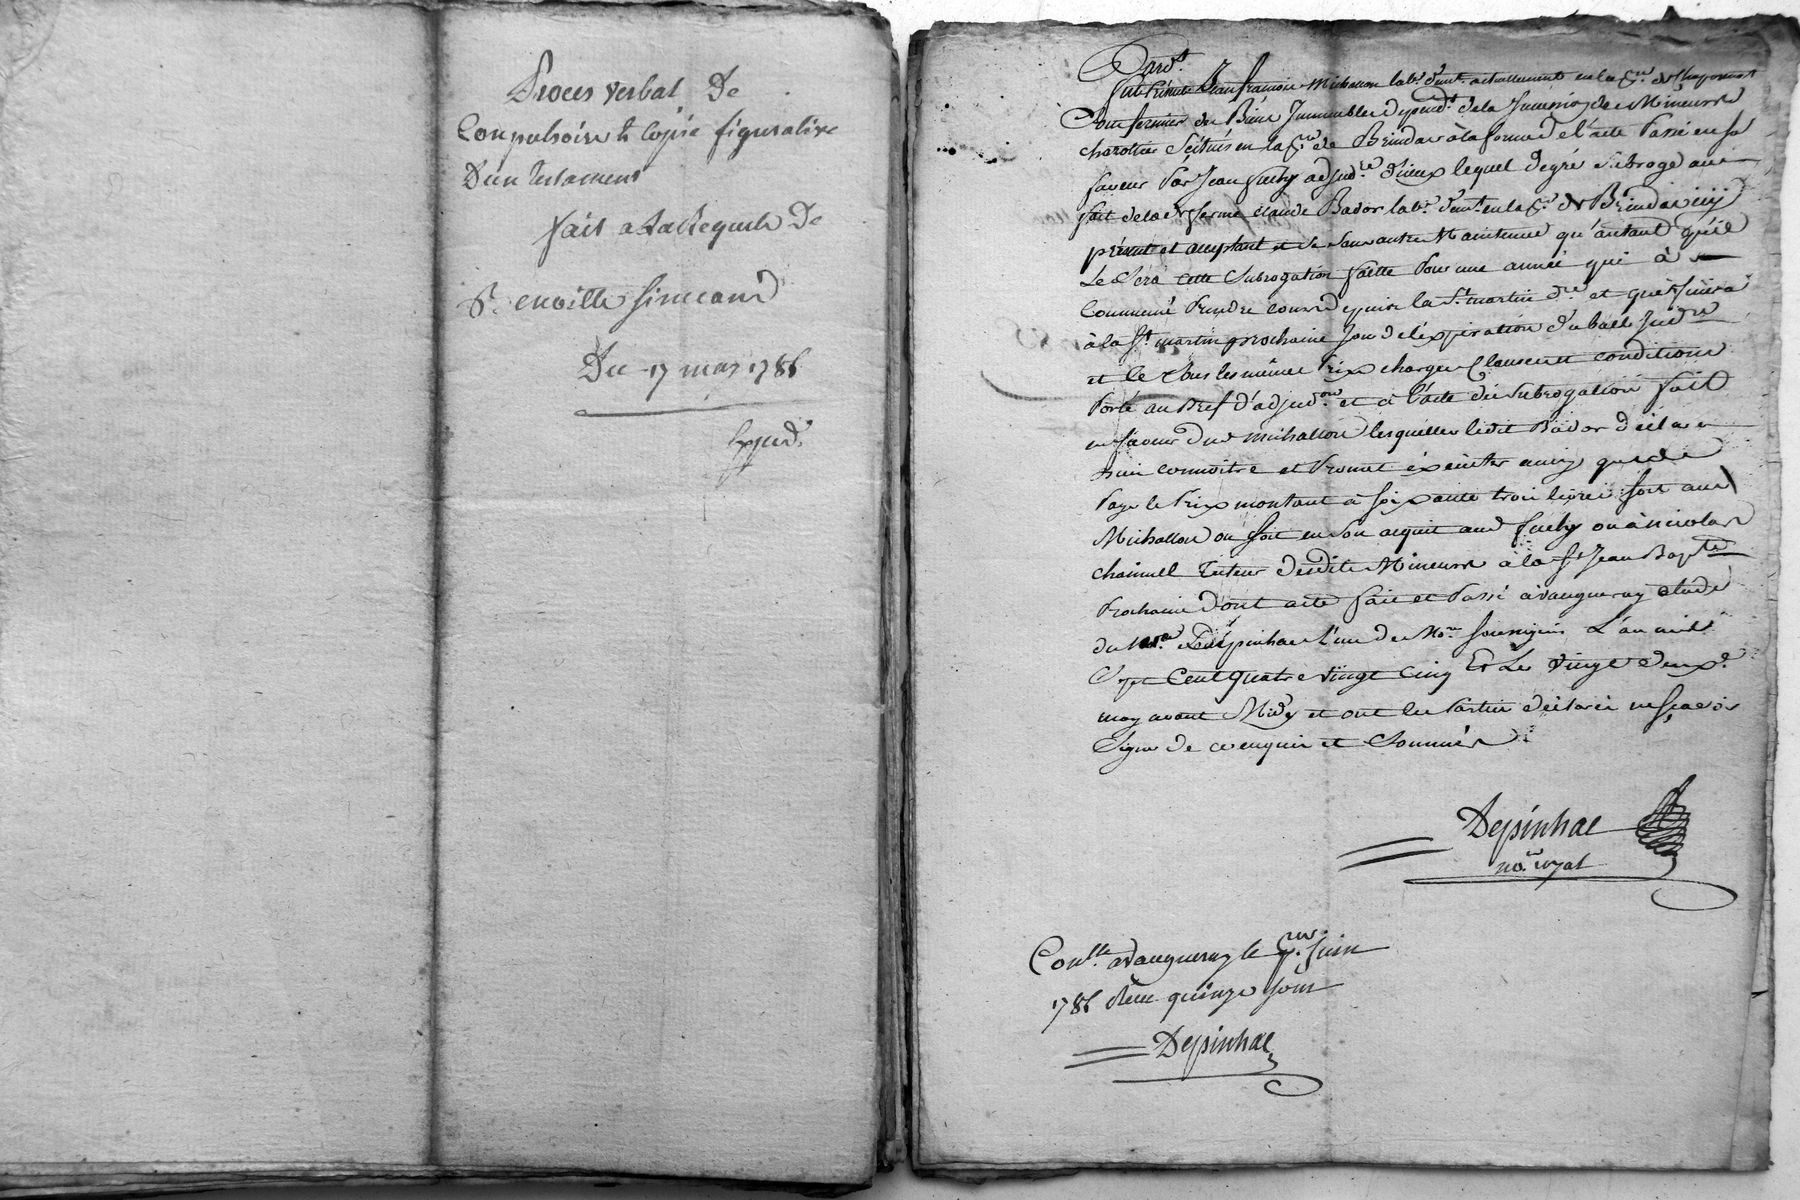 Proces verbal De
Conpulsoire & Copie figurative
D'un testament
fait a La Requete De
Sr. enville Simeand
Du 17 may 1785
Expéd.
Pardt.
fut Présent Jean françois Michallon labr. demt. actuellement en la
Pour fermier des Biens Immeubles dépendts. de la Succession des Mineurs
charottier Scitués en la prr. de Brindas à la forme de l'acte Passé en sa
faveur Par Jean fuchy adjudre. d'iceux lequel degré Subroge aux
fait de lade. ferme claude Bador labr. demt. en la pr. de Brindas icy
présent et acceptant et Se Sans autre Maintenue qu'autant qu'il
Le Sera cette Subrogation faitte Pour une année qui à
Commencé Prendre cours depuis la St. martin dre. et qui finira
à la St. martin prochaine Jour de l'expiration du bail Judre
et ce Sous les mêmes Prix charges Clauses et conditions
Porté au Bref d'adjudon. et à l'acte de Subrogation fait
en faveur dud Michallon lesquelles ledit Bador déclare
bien connoitre et Promet éxécuter ainsy que de
Paye le Prix montant à Soixante trois livres Soit aud
Michallon ou Soit en Son acquit aud fuchy ou à nicolas
chainuel Tuteur desdits Mineurs à la St Jean Bapte
Prochaine dont acte fait et Passé à vaugneray etude
du Me. Depinhac l'un des Nores. Soussignés L'an mil
Sept Cent Quatre vingt Cinq Et Le vingt deuxe.
may avant Midy et ont les Parties déclaré ne Sçavoir
Signer de ce enquis et Sommés
Depinhac
nore. royal
Conlle. à Vaugneray le pr. Juin
1785 Reçu quinze Sous
Depinhac